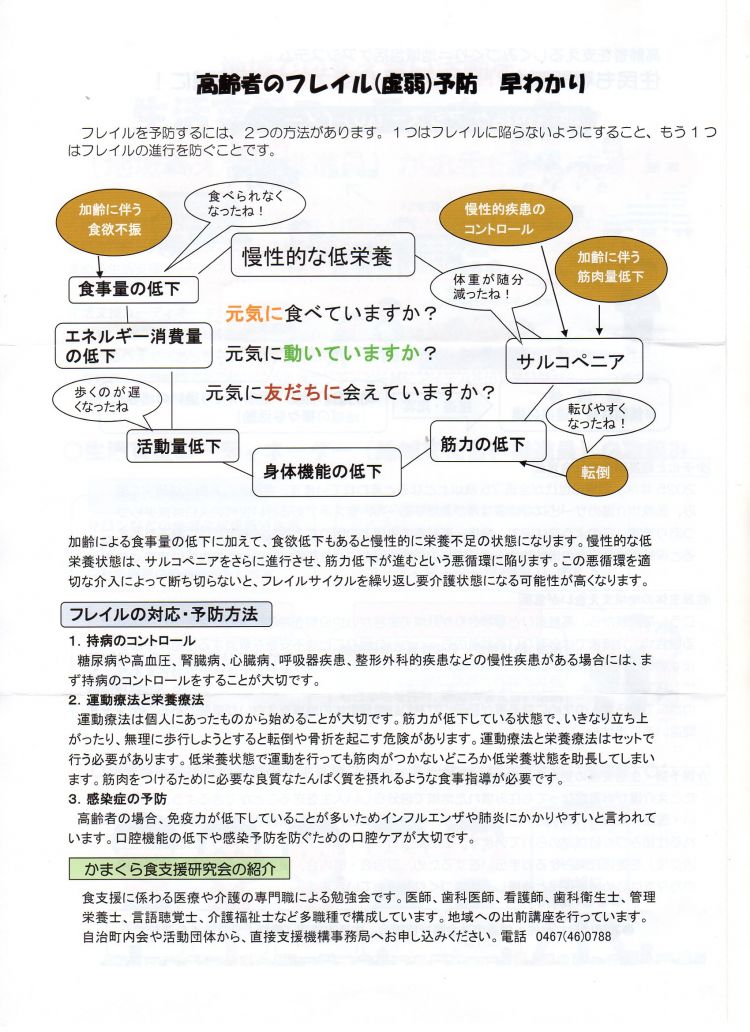 高齢者のフレイル(虚弱)予防　早わかり
フレイルを予防するには、２つの方法があります。１つはフレイルに陥らないようにすること、もう１つ
はフレイルの進行を防ぐことです。
加齢に伴う
食欲不振
食べられなく
なったね！
慢性的疾患の
コントロール
慢性的な低栄養
加齢に伴う
筋肉量低下
体重が随分
減ったね！
食事量の低下
元気に食べていますか？
エネルギー消費量
の低下
元気に動いていますか？
サルコペニア
元気に友だちに会えていますか？
歩くのが遅
くなったね
転びやすく
なったね！
活動量低下
筋力の低下
身体機能の低下
転倒
加齢による食事量の低下に加えて、食欲低下もあると慢性的に栄養不足の状態になります。慢性的な低
栄養状態は、サルコペニアをさらに進行させ、筋力低下が進むという悪循環に陥ります。この悪循環を適
切な介入によって断ち切らないと、フレイルサイクルを繰り返し要介護状態になる可能性が高くなります。
フレイルの対応・予防方法
１．持病のコントロール
糖尿病や高血圧、腎臓病、心臓病、呼吸器疾患、整形外科的疾患などの慢性疾患がある場合には、ま
ず持病のコントロールをすることが大切です。
２．運動療法と栄養療法
運動療法は個人にあったものから始めることが大切です。筋力が低下している状態で、いきなり立ち上
がったり、無理に歩行しようとすると転倒や骨折を起こす危険があります。運動療法と栄養療法はセットで
行う必要があります。低栄養状態で運動を行っても筋肉がつかないどころか低栄養状態を助長してしまい
ます。筋肉をつけるために必要な良質なたんぱく質を摂れるような食事指導が必要です。
３．感染症の予防
高齢者の場合、免疫力が低下していることが多いためインフルエンザや肺炎にかかりやすいと言われて
います。口腔機能の低下や感染予防を防ぐための口腔ケアが大切です。
かまくら食支援研究会の紹介
食支援に係わる医療や介護の専門職による勉強会です。医師、歯科医師、看護師、歯科衛生士、管理
栄養士、言語聴覚士、介護福祉士など多職種で構成しています。地域への出前講座を行っています。
自治町内会や活動団体から、直接支援機構事務局へお申し込みください。電話　0467(46)0788